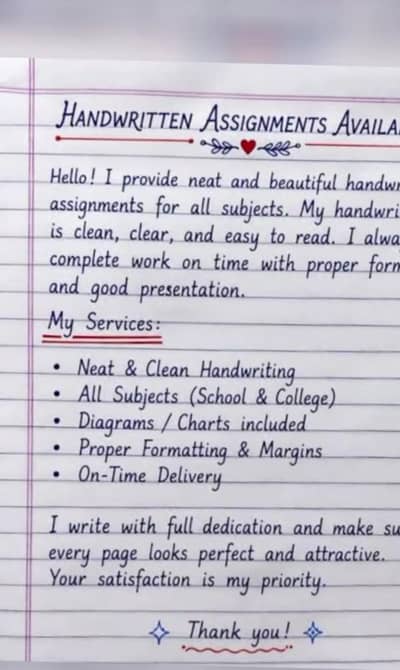 HANDWRITTEN ASSIGNMENTS AVAILA
Hello! I provide neat and beautiful handwr
assignments for all subjects. My handwri
is clean, clear, and easy to read. I alwa
complete work on time with proper form
and good presentation.
My Services:
• Neat & Clean Handwriting
• All Subjects (School & College)
• Diagrams / Charts included
• Proper Formatting & Margins
• On-Time Delivery
I write with full dedication and make su
every page looks perfect and attractive.
Your satisfaction is my priority.
Thank you!